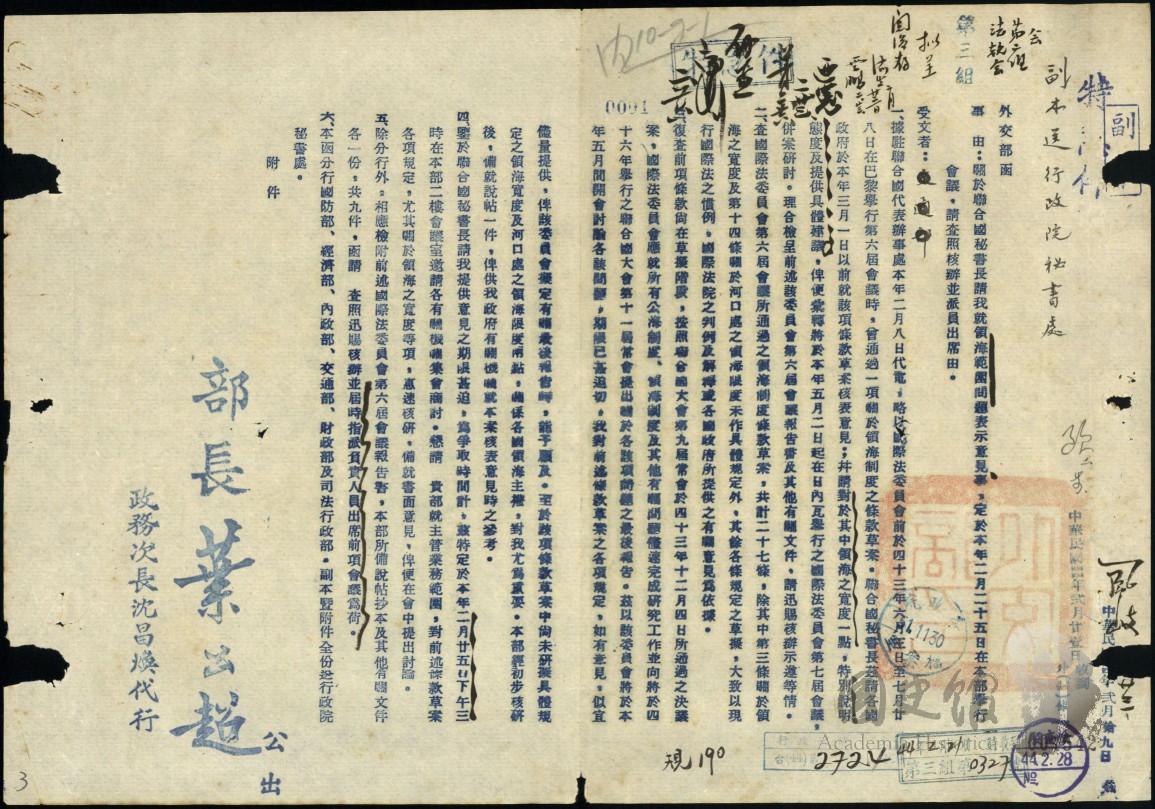 副本送行政院秘書處
外交部函
事　由：關於聯合國秘書長請我就領海範圍問題表示意見事，定於本年二月二十五日在本部舉行
會議，請查照核辦並派員出席由。
受文者：交通部
一、據駐聯合國代表辦事處本年二月八日代電，略以國際法委員會前於四十三年六月 日至七月廿
八日在巴黎舉行第六屆會議時，曾通過一項關於領海制度之條款草案。聯合國秘書長茲請各國
政府於本年三月一日以前就該項條款草案核表意見；幷請對於其中領海之寬度一點，特別說明
態度及提供具體建議，俾便彙轉將於本年五月二日起在日內瓦舉行之國際法委員會第七屆會議，
併案研討。理合檢呈前述該委員會第六屆會議報告書及其他有關文件，請迅賜核辦示遵等情。
二、查國際法委員會第六屆會議所通過之領海制度條款草案，共計二十七條，除其中第三條關於領
海之寬度及第十四條關於河口處之領海限度未作具體規定外，其餘各條規定之草擬，大致以現
行國際法之慣例，國際法院之判例及解釋或各國政府所提供之有關意見為依據。
三、復查前項條款尚在草擬階段，按照聯合國大會第九屆常會於四十三年十二月四日所通過之決議
案，國際法委員會應就所有公海制度、領海制度及其他有關問題儘速完成研究工作並向將於四
十六年舉行之聯合國大會第十一屆常會提出關於各該項問題之最後報告。茲以該委員會將於本
年五月間開會討論各該問題，期限已甚迫切，我對前述條款草案之各項規定，如有意見，似宜
儘量提供，俾該委員會擬定有關最後報告時，能予顧及。至於該項條款草案中尚未研擬具體規
定之領海寬度及河口處之領海限度兩點，關係各國領海主權，對我尤為重要。本部經初步核研
後，備就說帖一件，俾供我政府有關機關就本案核表意見時之參考。
四、鑒於聯合國秘書長請我提供意見之期限甚迫，為爭取時間計，茲特定於本年二月廿五日下午三
時在本部二樓會議室邀請各有關機關集會商討。懇請　貴部就主管業務範圍，對前述條款草案
各項規定，尤其關於領海之寬度等項，惠速核研，備就書面意見，俾便在會中提出討論。
五、除分行外，相應檢附前述國際法委員會第六屆會議報告書，本部所備說帖抄本及其他有關文件
各一份，共九件，函請　查照迅賜核辦並屆時指派負責人員出席前項會議為荷。
六、本函分行國防部、經濟部、內政部、交通部、財政部及司法行政部。副本暨附件全份送行政院
秘書處。
附　件
部長葉公超公出
政務次長沈昌煥代行
第三組
0001
規190
2724
44.2.21
第三組
0327
44.2.28
國史館
3